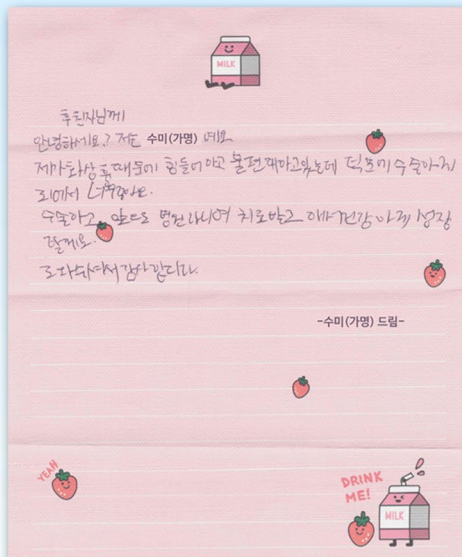 MILK
후원자님께
안녕하세요? 저는 수미(가명) 에요
제가 화상 흉 때문에 힘들어하고 불편해하고 있는데 덕분에 수술하게
되어서 너무 좋아요.
수술하고 앞으로 병원 다니며 치료받고 해서 건강하게 성장
할게요.
도와주셔서 감사합니다.
-수미(가명) 드림-
YEAH
DRINK
ME!
MILK